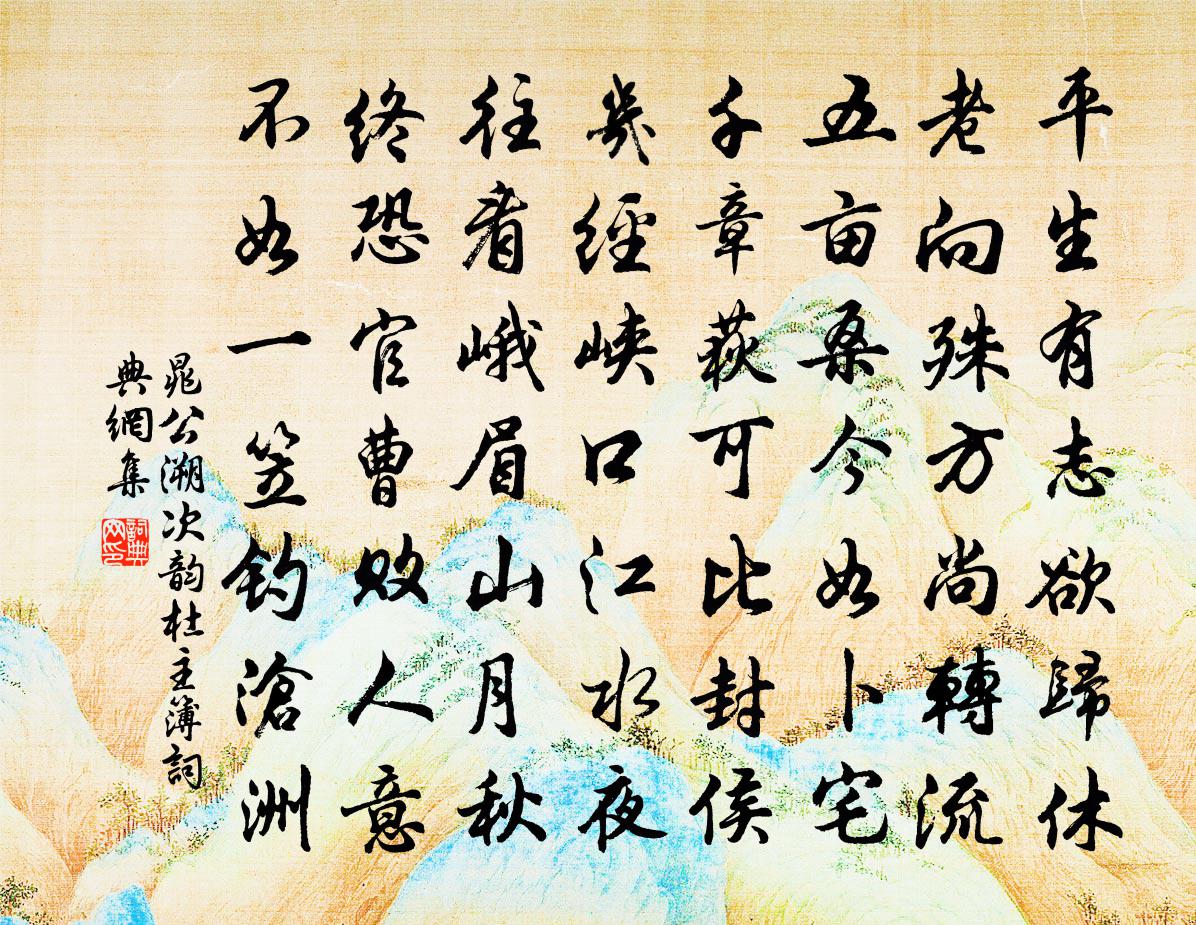 平生有志欲歸休
老向殊方尚轉流
五亩桑今如卜宅
千章荻可比封侯
幾經峽口江水夜
往看峨眉山月秋
终恐官曹败人意
不如一笠钓滄洲
晁公溯次韵杜主簿詞
典網集
詞典
网印